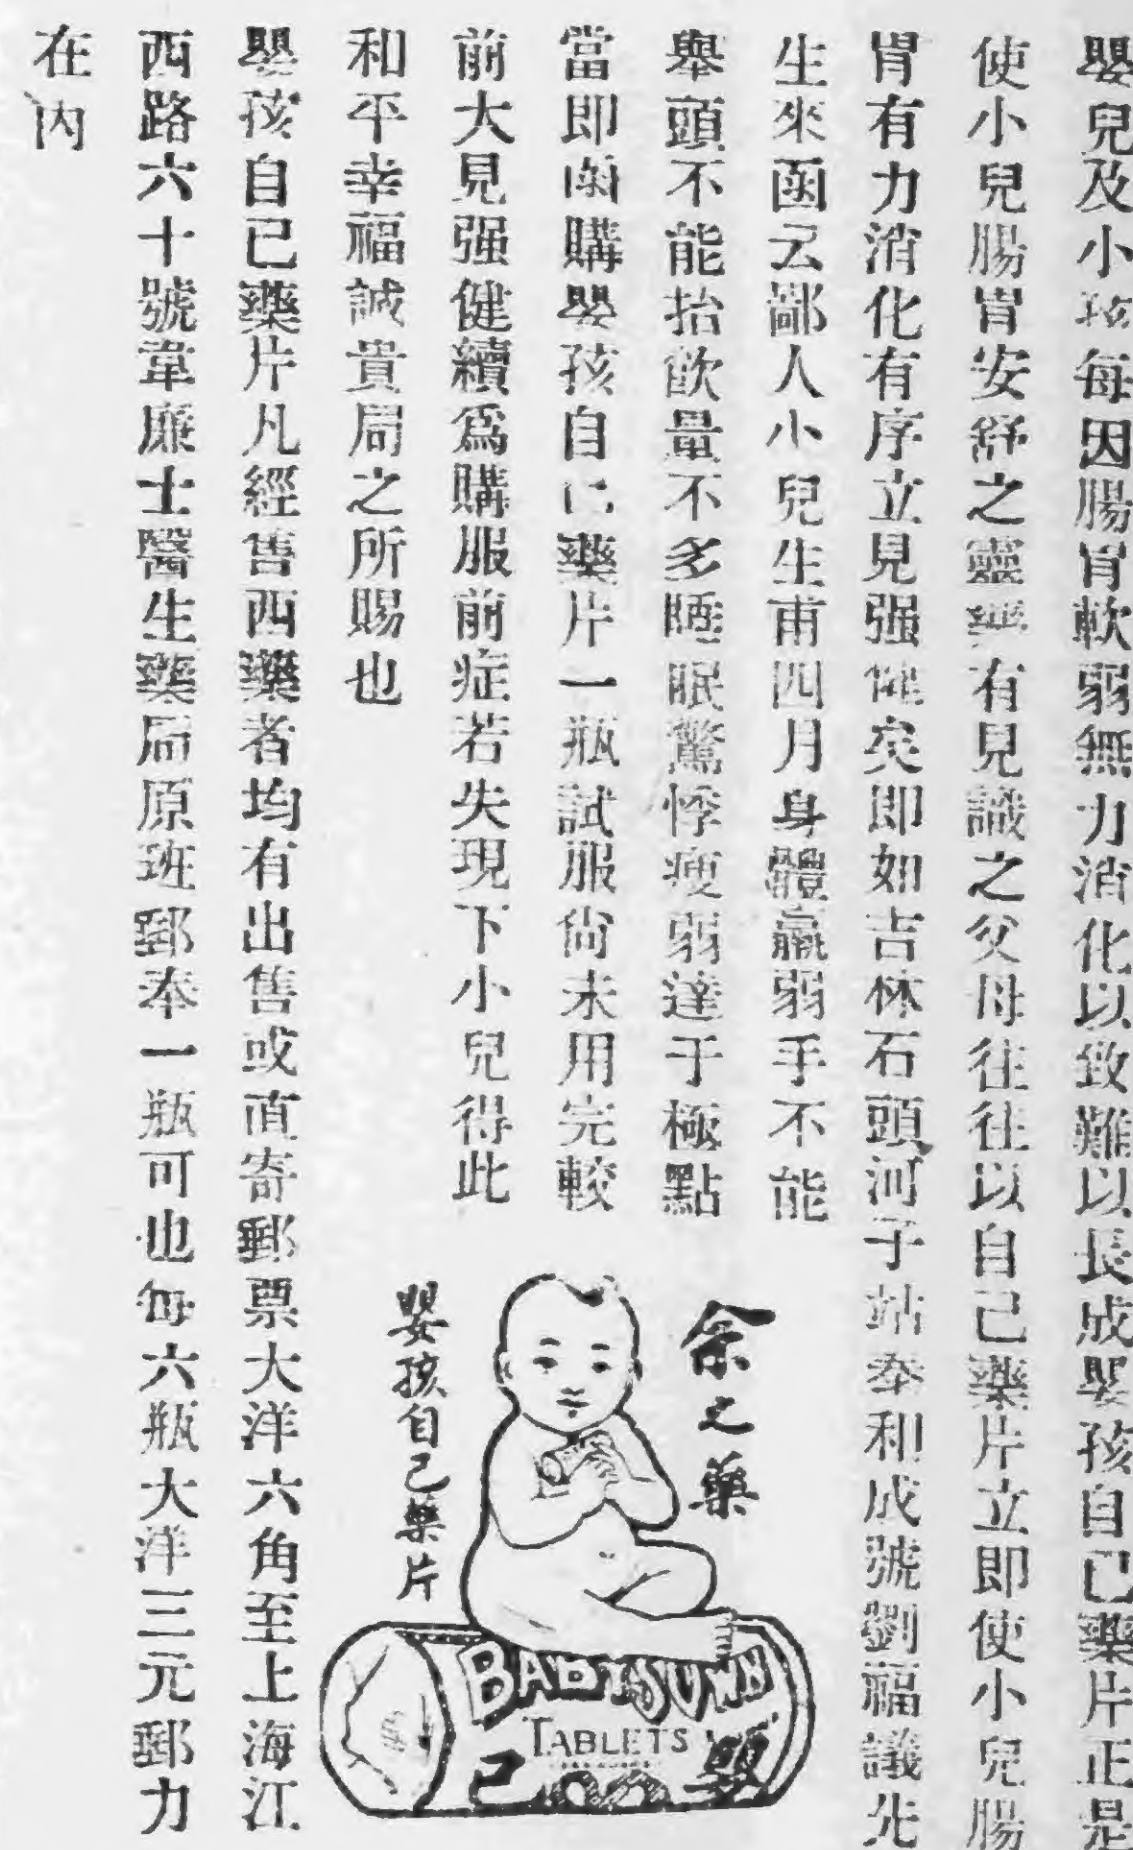 嬰兒及小孩每因腸胃軟弱無力消化以致難以長成嬰孩自己藥片正是
使小兒腸胃安舒之靈藥有見識之父母往往以自己藥片立即使小兒腸
胃有力消化有序立見强健矣即如吉林石頭河子站奉利成號劉福議先
生來函云鄙人小兒生甫四月身體羸弱手不能
舉頭不能抬飲量不多睡眠驚悸瘦弱達于極點
當即函購嬰孩自己藥片一瓶試服尙未用完較
前大見强健續爲購服前症若失現下小兒得此
和平幸福誠貴局之所賜也
嬰孩自己藥片凡經售西藥者均有出售或直寄郵票大洋六角至上海江
西路六十號韋廉士醫生藥局原班郵奉一瓶可也每六瓶大洋三元郵力
在內
余之藥
嬰孩自己藥片
BABY'S OWN
TABLETS
己 嬰